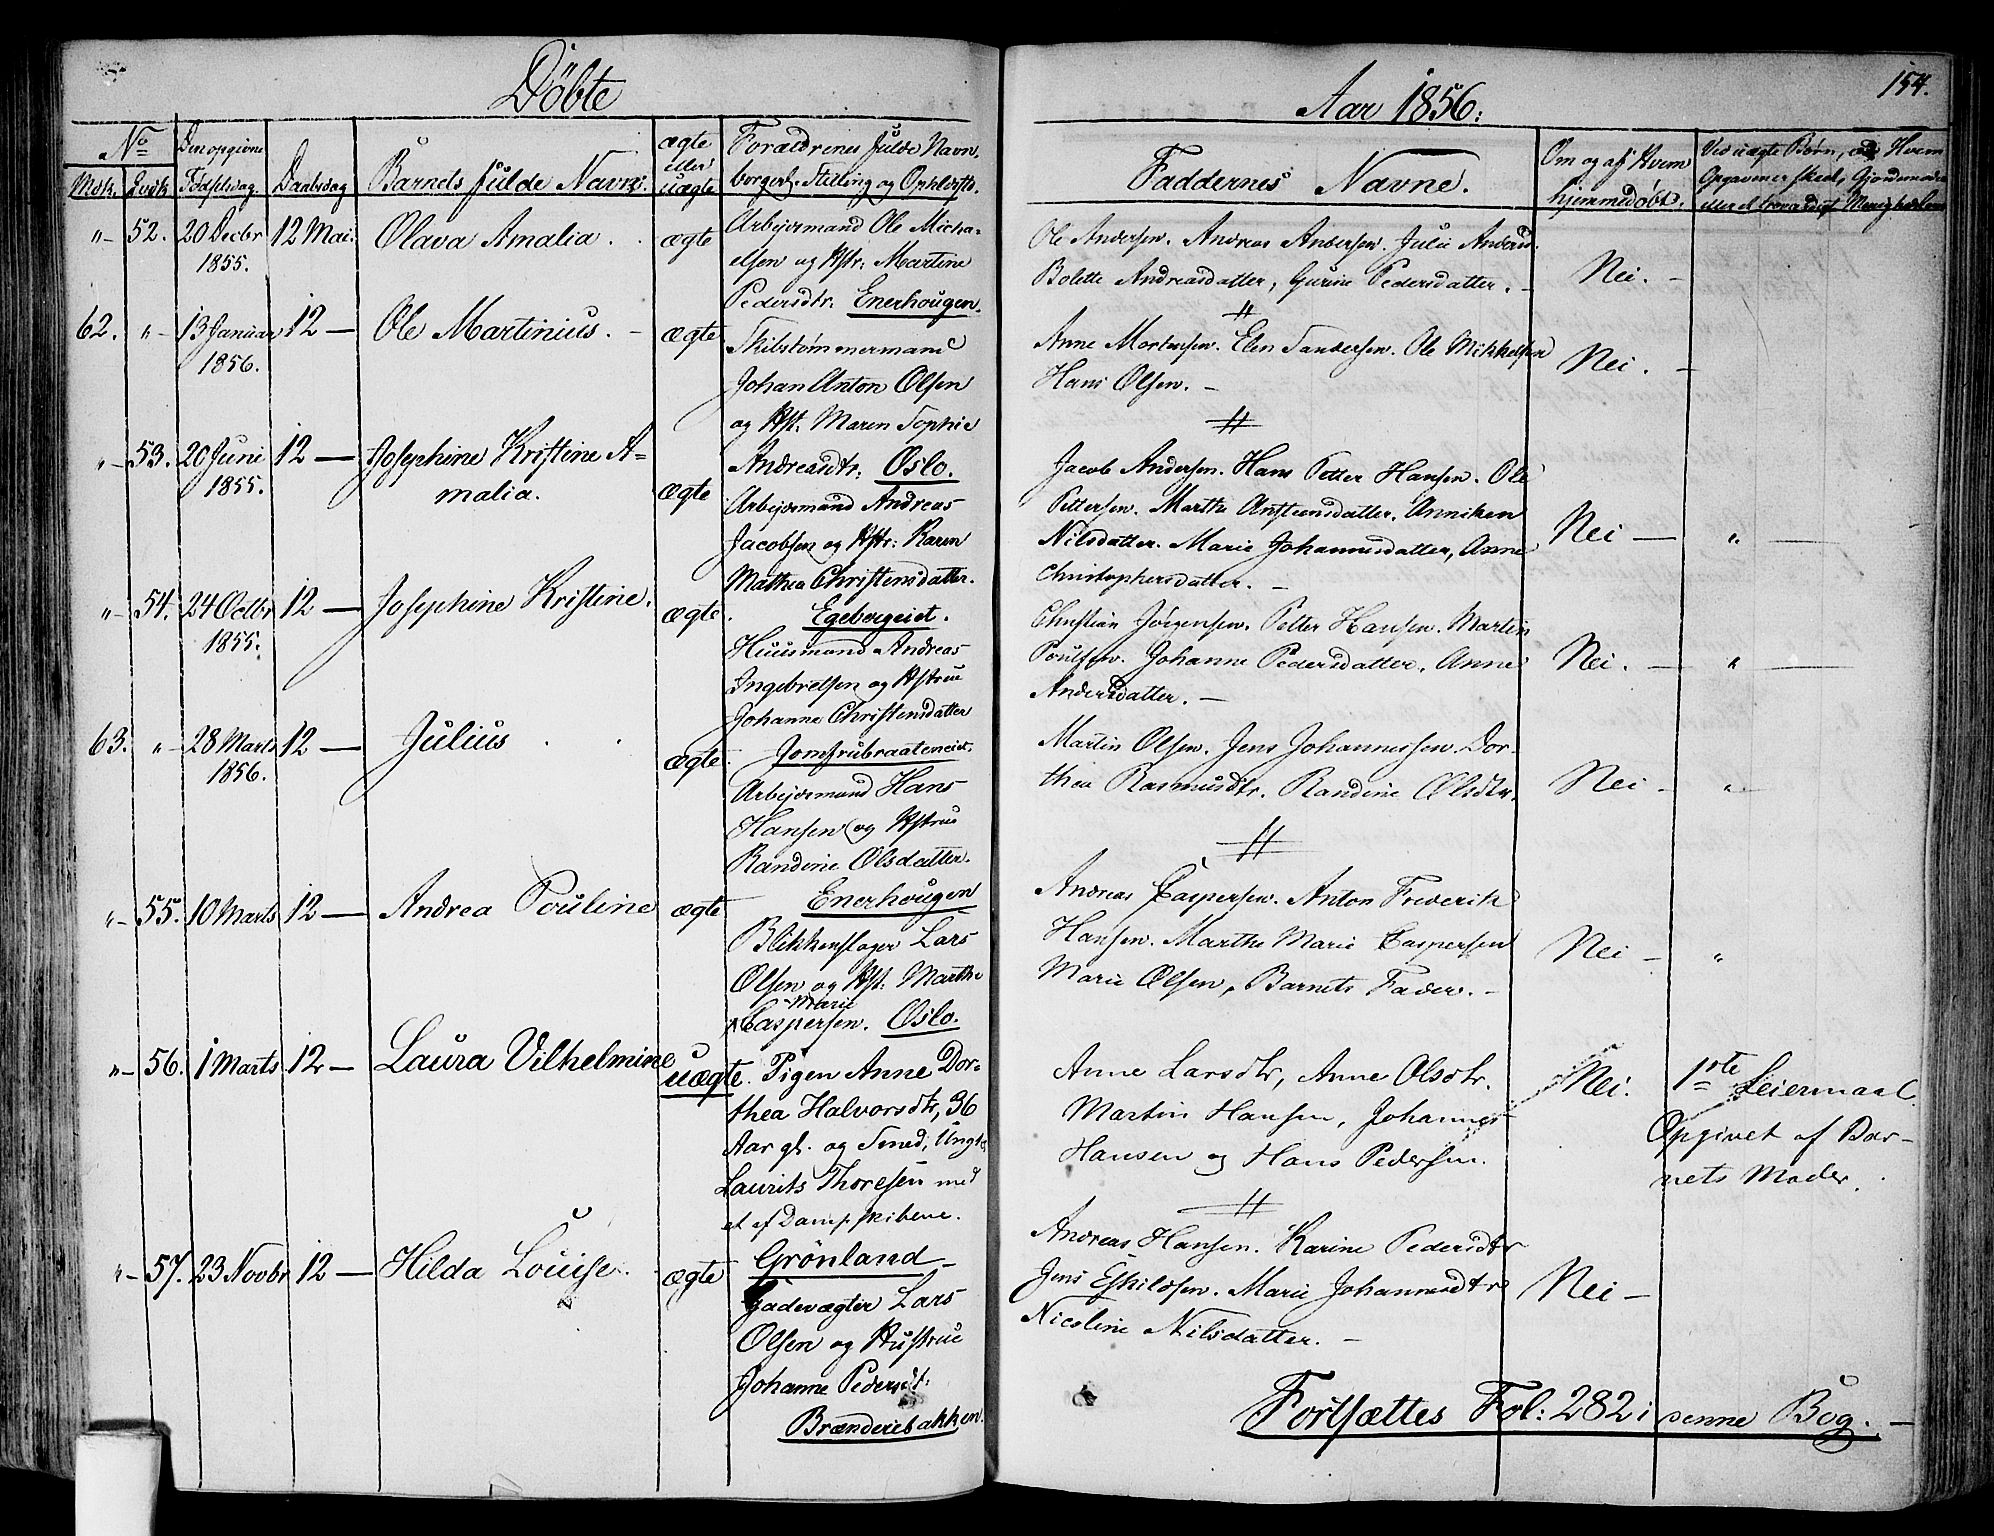 Döbte
No
Mdk. Qvdk.
Den opgivne
Fødselsdag.
Daabsdag
Barnets fulde Navn.
ægte
eller
uægte
Forældrenes fulde Navn,
borgerl. Stilling og Opholdsst.
" 52. 20 Decbr 12 Mai. Olava Amalia. ægte
1855.
Arbejdsmand Ole Micha-
elsen og Hstr: Martine
Pedersdtr: Enerhougen.
62. " 13 Januar 12 — Ole Martinius. — ægte
1856.
Skibstømmermand
Johan Anton Olsen
og Hst: Maren Sophie
Andreasdtr: Oslo.
" 53. 20 Juni 12 — Josephine Kristine A-
1855. malia. ægte
Arbejdsmand Andreas
Jacobsen og Hstr: Karen
Mathea Christensdatter.
Egebergeiet.
" 54. 24 Octbr 12 — Josephine Kristine. ægte.
1855.
Huusmand Andreas
Ingebretsen og Hstrue
Johanne Christensdatter
Jomfrubraateneiet.
63. " 28 Marts 12 — Julius ægte.
1856.
Arbejdsmand Hans
Hansen og Hstrue
Randine Olsdatter.
Enerhougen
" 55. 10 Marts 12 — Andrea Pouline ægte
Blikkenslager Lars
Olsen og Hst: Marthe
Marie
Caspersen. Oslo.
" 56. 1 Marts 12 — Laura Vilhelmine uægte.
Pigen Anne Dor-
thea Halvorsdtr, 36
Aar gl. og Smed, Ungk.
Laurits Thoresen med
et af Dampskibene.
Grönland
" 57. 23 Novbr 12 — Hilda Louise. ægte
Gadevægter Lars
Olsen og Hustrue
Johanne Pedersdt:
Brænderibakken.
154.
Aar 1856.
Faddernes Navne.
Om og af Hvem
hjemmedøbt.
Ved uægte Børn, af Hvem
Opgaven er skeet, Gjordemoder
eller
Ole Andersen. Andreas Andersen. Julie Andersd.
Bolette Andreasdatter, Gurine Pedersdatter. — Nei. —
Anne Mortensen. Elen Sandersen. Ole Mikkelsen
Hans Olsen. — Nei. —
Jacob Andersen. Hans Petter Hansen. Ole
Pettersen. Marthe Anstensdatter. Anniken
Nilsdatter. Marie Johannesdatter, Anne Nei — " —
Christophersdatter. —
Christian Jørgensen. Petter Hansen. Martin
Poulsen. Johanne Pedersdatter. Anne Nei. — " —
Andersdatter. —
Martin Olsen. Jens Johannessen. Dor-
thea Rasmusdtr. Randine Olsdtr. Nei — "
Andreas Caspersen. Anton Frederik
Hansen. Marthe Marie Caspersen Nei — "
Marie Olsen, Barnets Fader. —
Anne Larsdtr, Anne Olsdtr. Nei. 1ste Leiermaal.
Martin Hansen, Johannes Opgivet af Bar-
Hansen og Hans Pedersen. nets Moder.
Andreas Hansen. Karine Pedersdtr
Jens Eskildsen. Marie Johannesdtr Nei —
Nicoline Nilsdatter. —
Fortsættes Fol: 282 i denne Bog. —